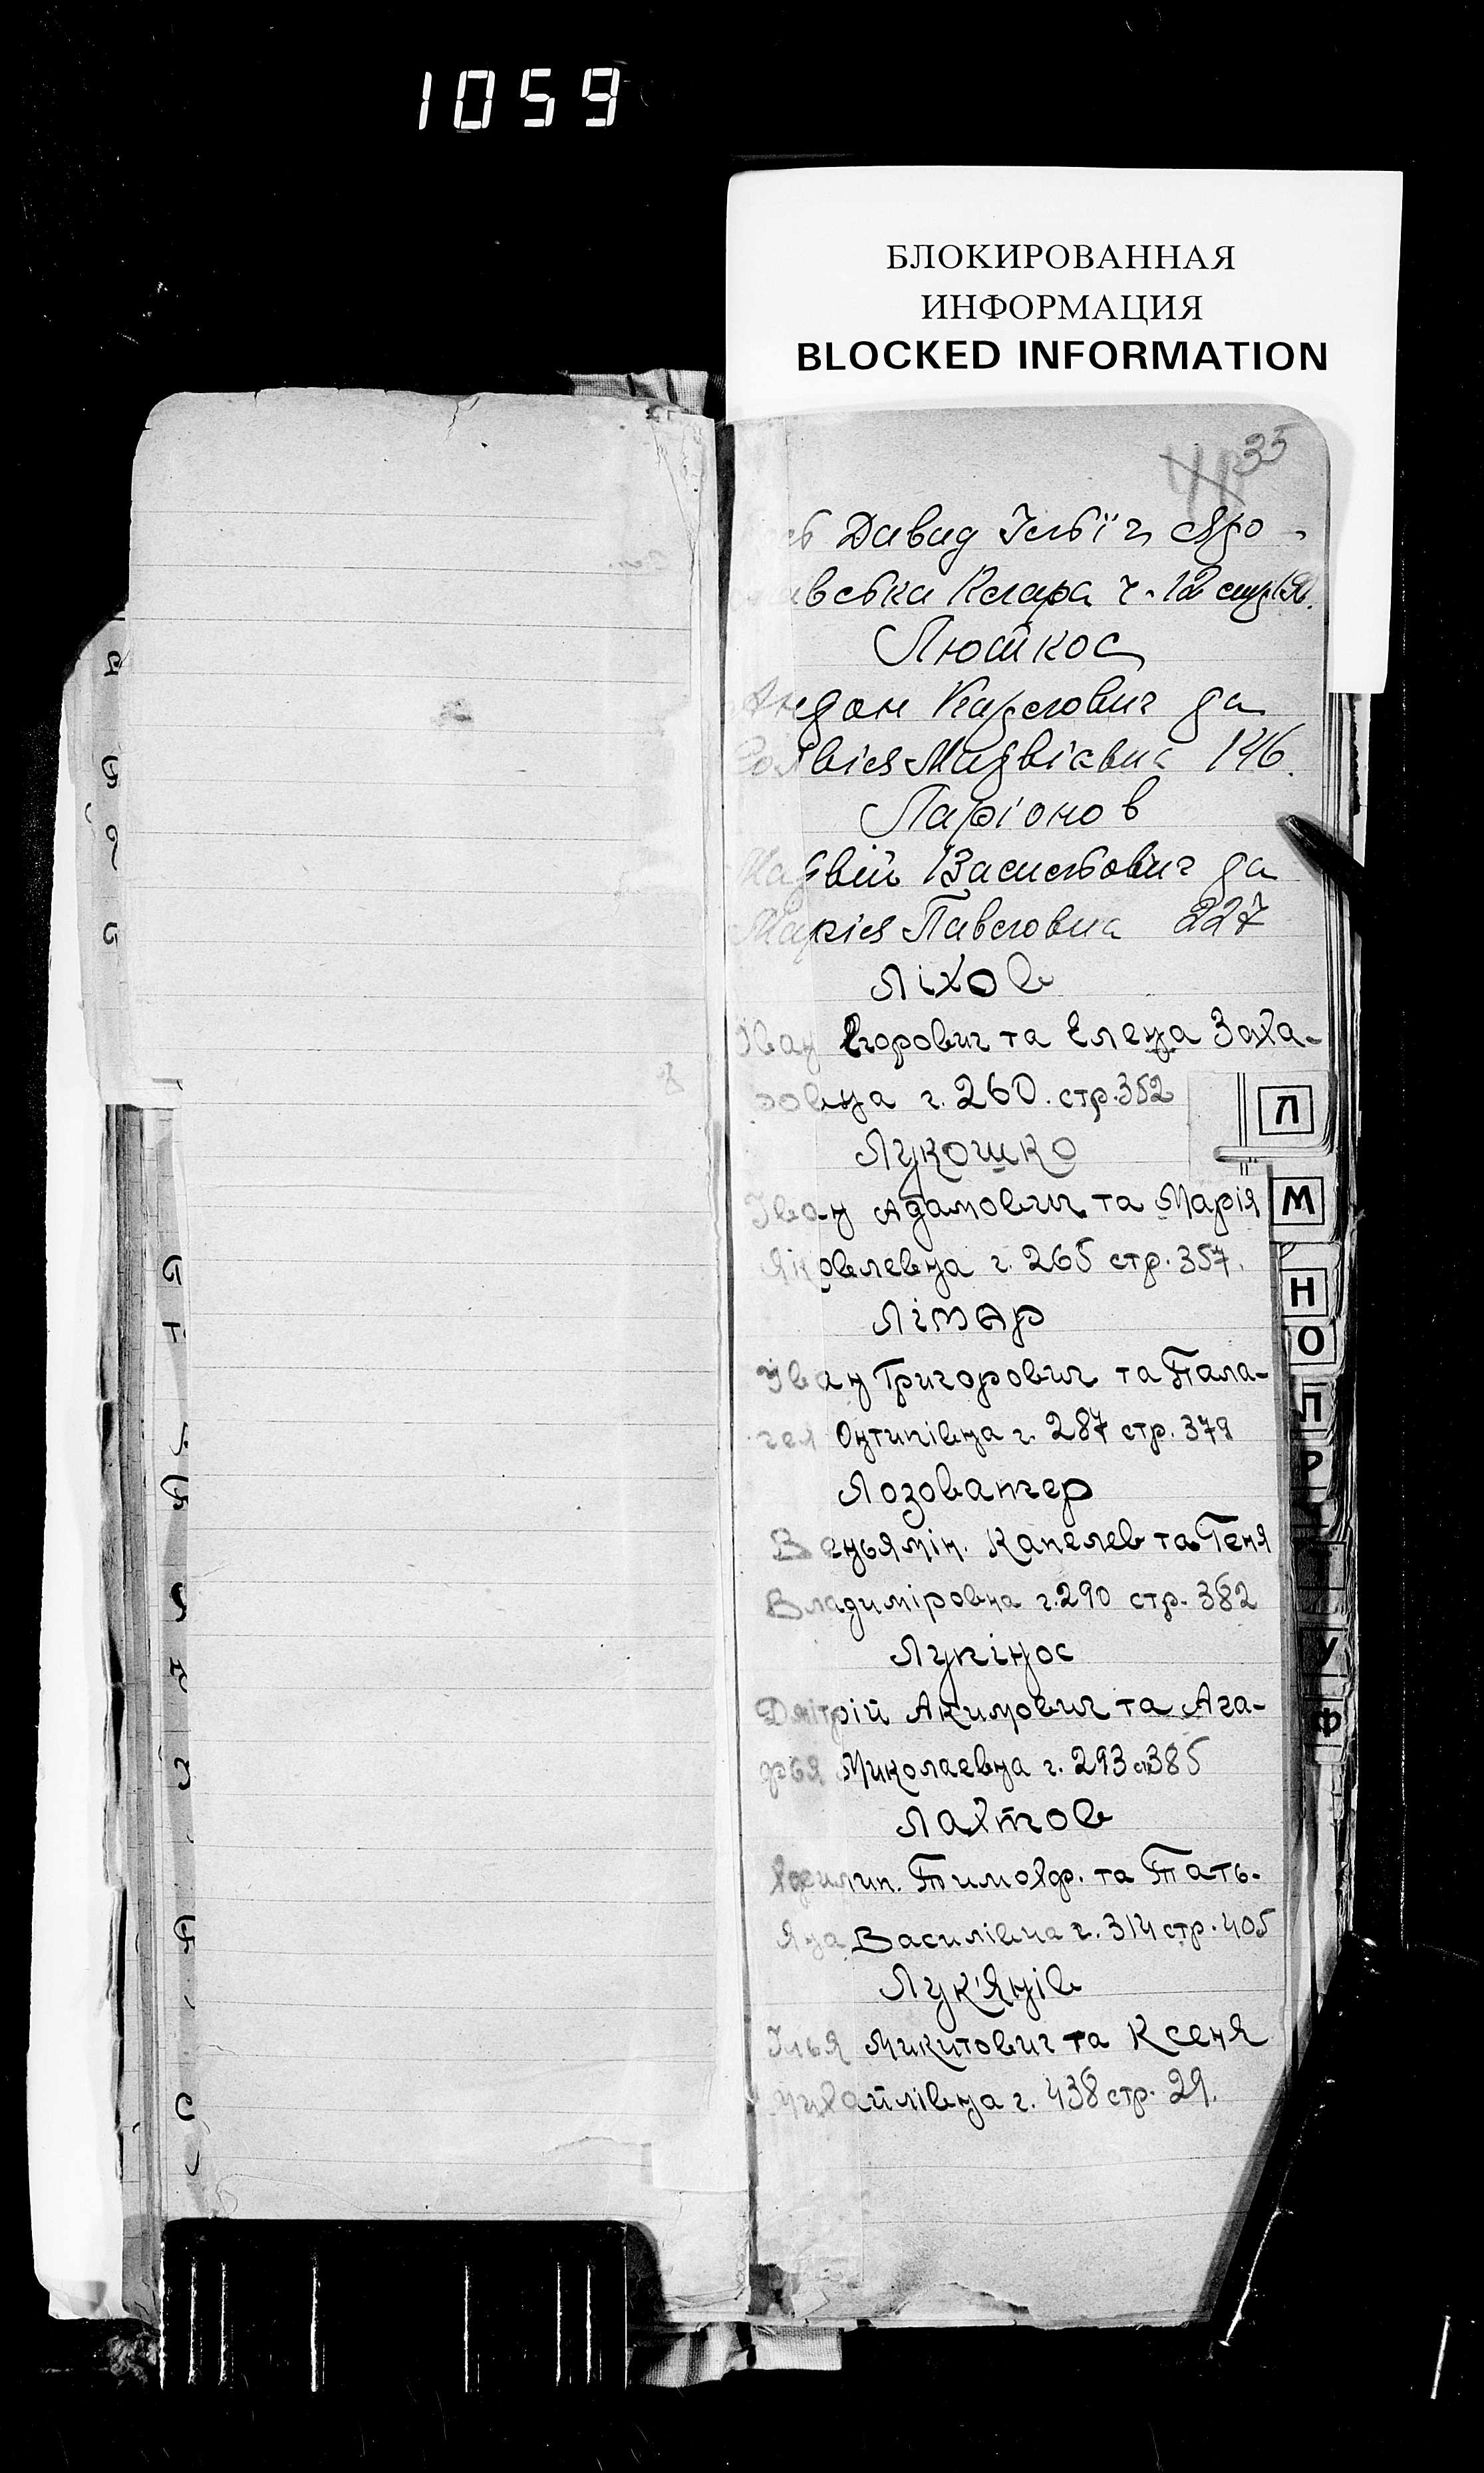 1059
БЛОКИРОВАННАЯ
ИНФОРМАЦИЯ
BLOCKED INFORMATION
35
Давид Ільїч Яро-
Клара ч. 12 стр.
Люткос
Андон Карлович да
Матвієвна 146.
Ларіонов
Матвій Васильович да
Марія Павловна 227
Ліхов
Іван Егорович та Елена Заха-
ровна г. 260. стр. 352
Лукошко
Іван Адамович та Марія
Яковлевна г. 265 стр. 357.
Лімар
Іван Григорович та Пала-
гея Онтипівна г. 287 стр. 379
Лозоватер
Веньямін. Капелев та Геня
Владиміровна г. 290 стр. 382
Лупінос
Дмітрій Акимович та Ага-
фья Миколаевна г. 293 ст 385
Лахтов
Тимохф. та Тать-
Яна Василівна г. 314 стр. 405
Лук'янів
Ілья Микитович та Ксеня
Михайлівна г. 438 стр. 29.
Л
М
Н
О
П
Р
У
Ф